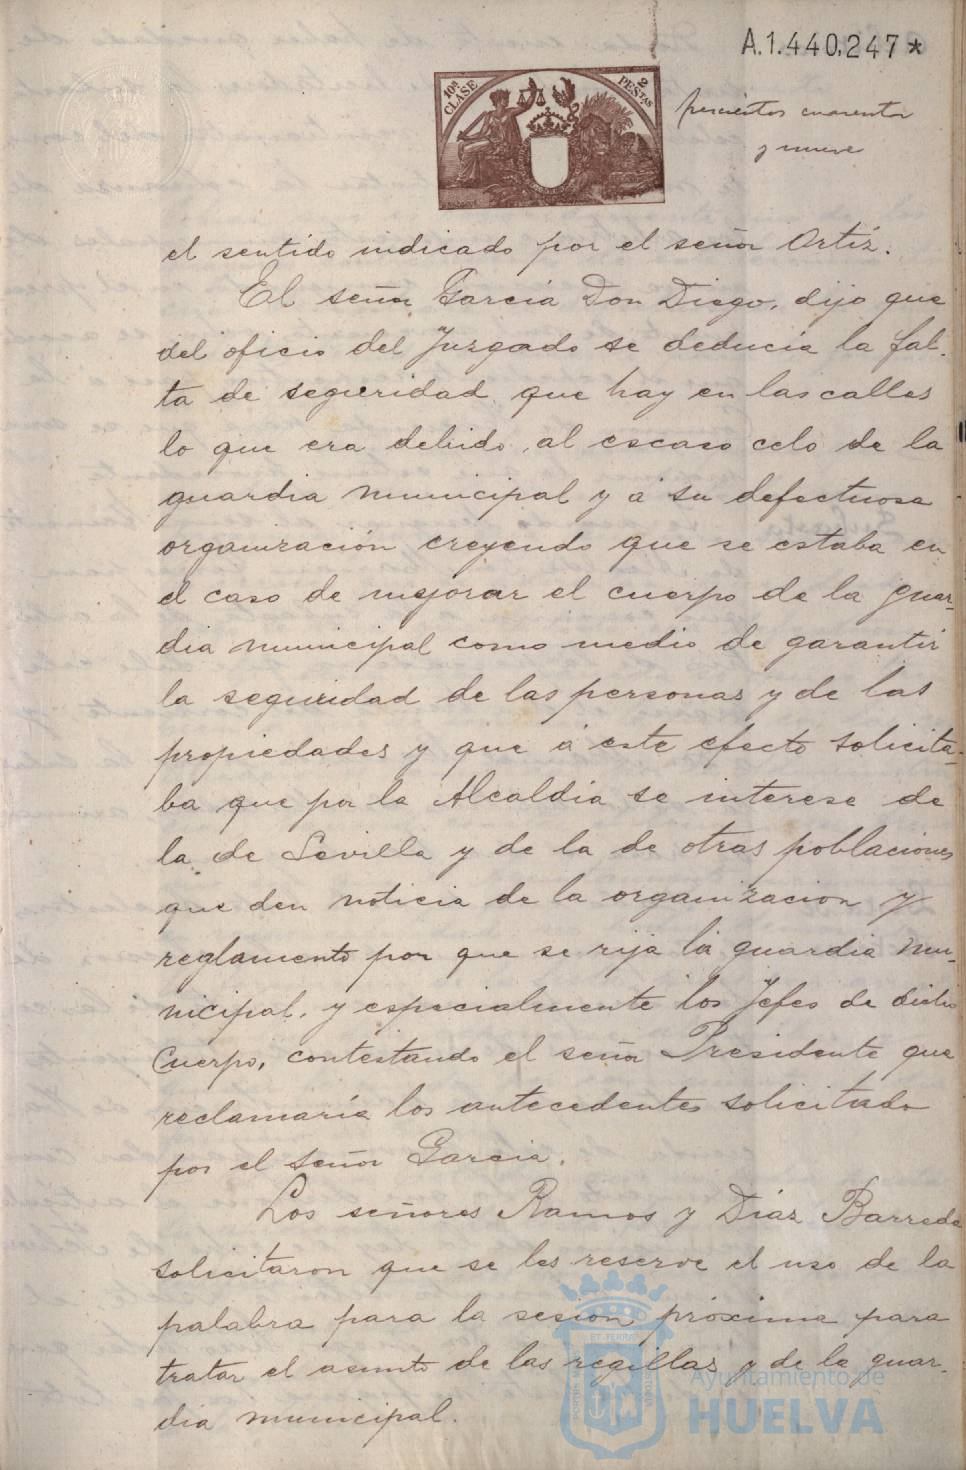 A.1.440,247*
10ª CLASE
2 PESTAS
cuarenta
y nueve
el sentido indicado por el señor Ortiz.
El señor Garcia Don Diego, dijo que
del oficio del Juzgado se deducia la fal-
ta de seguridad que hay en las calles
lo que era debido, al escaso celo de la
guardia municipal y á su defectuosa
organización creyendo que se estaba en
el caso de mejorar el cuerpo de la guar-
dia municipal como medio de garantir
la seguridad de las personas y de las
propiedades y que á este efecto solicita-
ba que por la Alcaldia se interese de
la de Sevilla y de la de otras poblaciones
que den noticia de la organizacion y
reglamento por que se rija la guardia mu-
nicipal, y especialmente los Jefes de dicho
Cuerpo, contestando el señor Presidente que
reclamaría los antecedentes solicitado
por el señor Garcia.
Los señores Ramos y Diaz Barreda
solicitaron que se les reserve el uso de la
palabra para la sesión próxima para
tratar el asunto de las regillas y de la guar-
dia municipal.
Ayuntamiento de
HUELVA